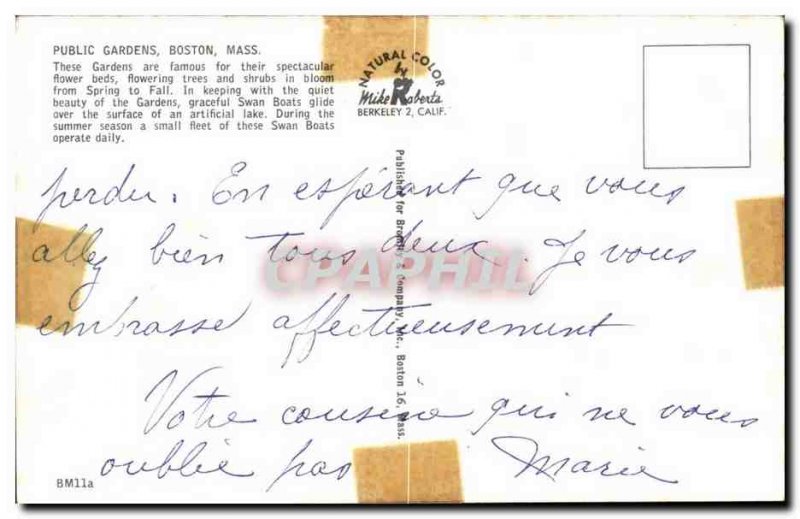 PUBLIC GARDENS, BOSTON, MASS.
These Gardens are famous for their spectacular
flower beds, flowering trees and shrubs in bloom
from Spring to Fall. In keeping with the quiet
beauty of the Gardens, graceful Swan Boats glide
over the surface of an artificial lake. During the
summer season a small fleet of these Swan Boats
operate daily.
NATURAL COLOR
by
Mike Roberts
BERKELEY 2, CALIF.
perdu. En espérant que vous
allez bien tous deux. Je vous
embrasse affectueusement
Votre cousine qui ne vous
oublie pas Marie
Published for Bromley & Company, Inc., Boston 16, Mass.
CPAPHIL
BM11a